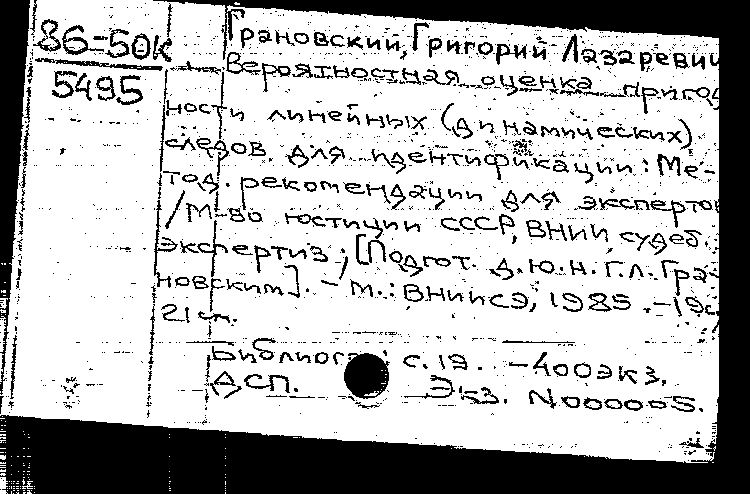 86-50к
5495
Грановский, Григорий Лазаревич
Вероятностная оценка пригод
ности линейных (динамических)
следов для идентификации: Ме-
тод. рекомендации для экспертов
/М-во юстиции СССР, ВНИИ судеб.
экспертиз; [Подгот. д.ю.н. Г.Л. Гра-
новским]. - М.: ВНИИСЭ, 1985. - 19с;
21 см.
Библиогр.: с. 19. - 400экз.
ДСП. Экз. N000005.